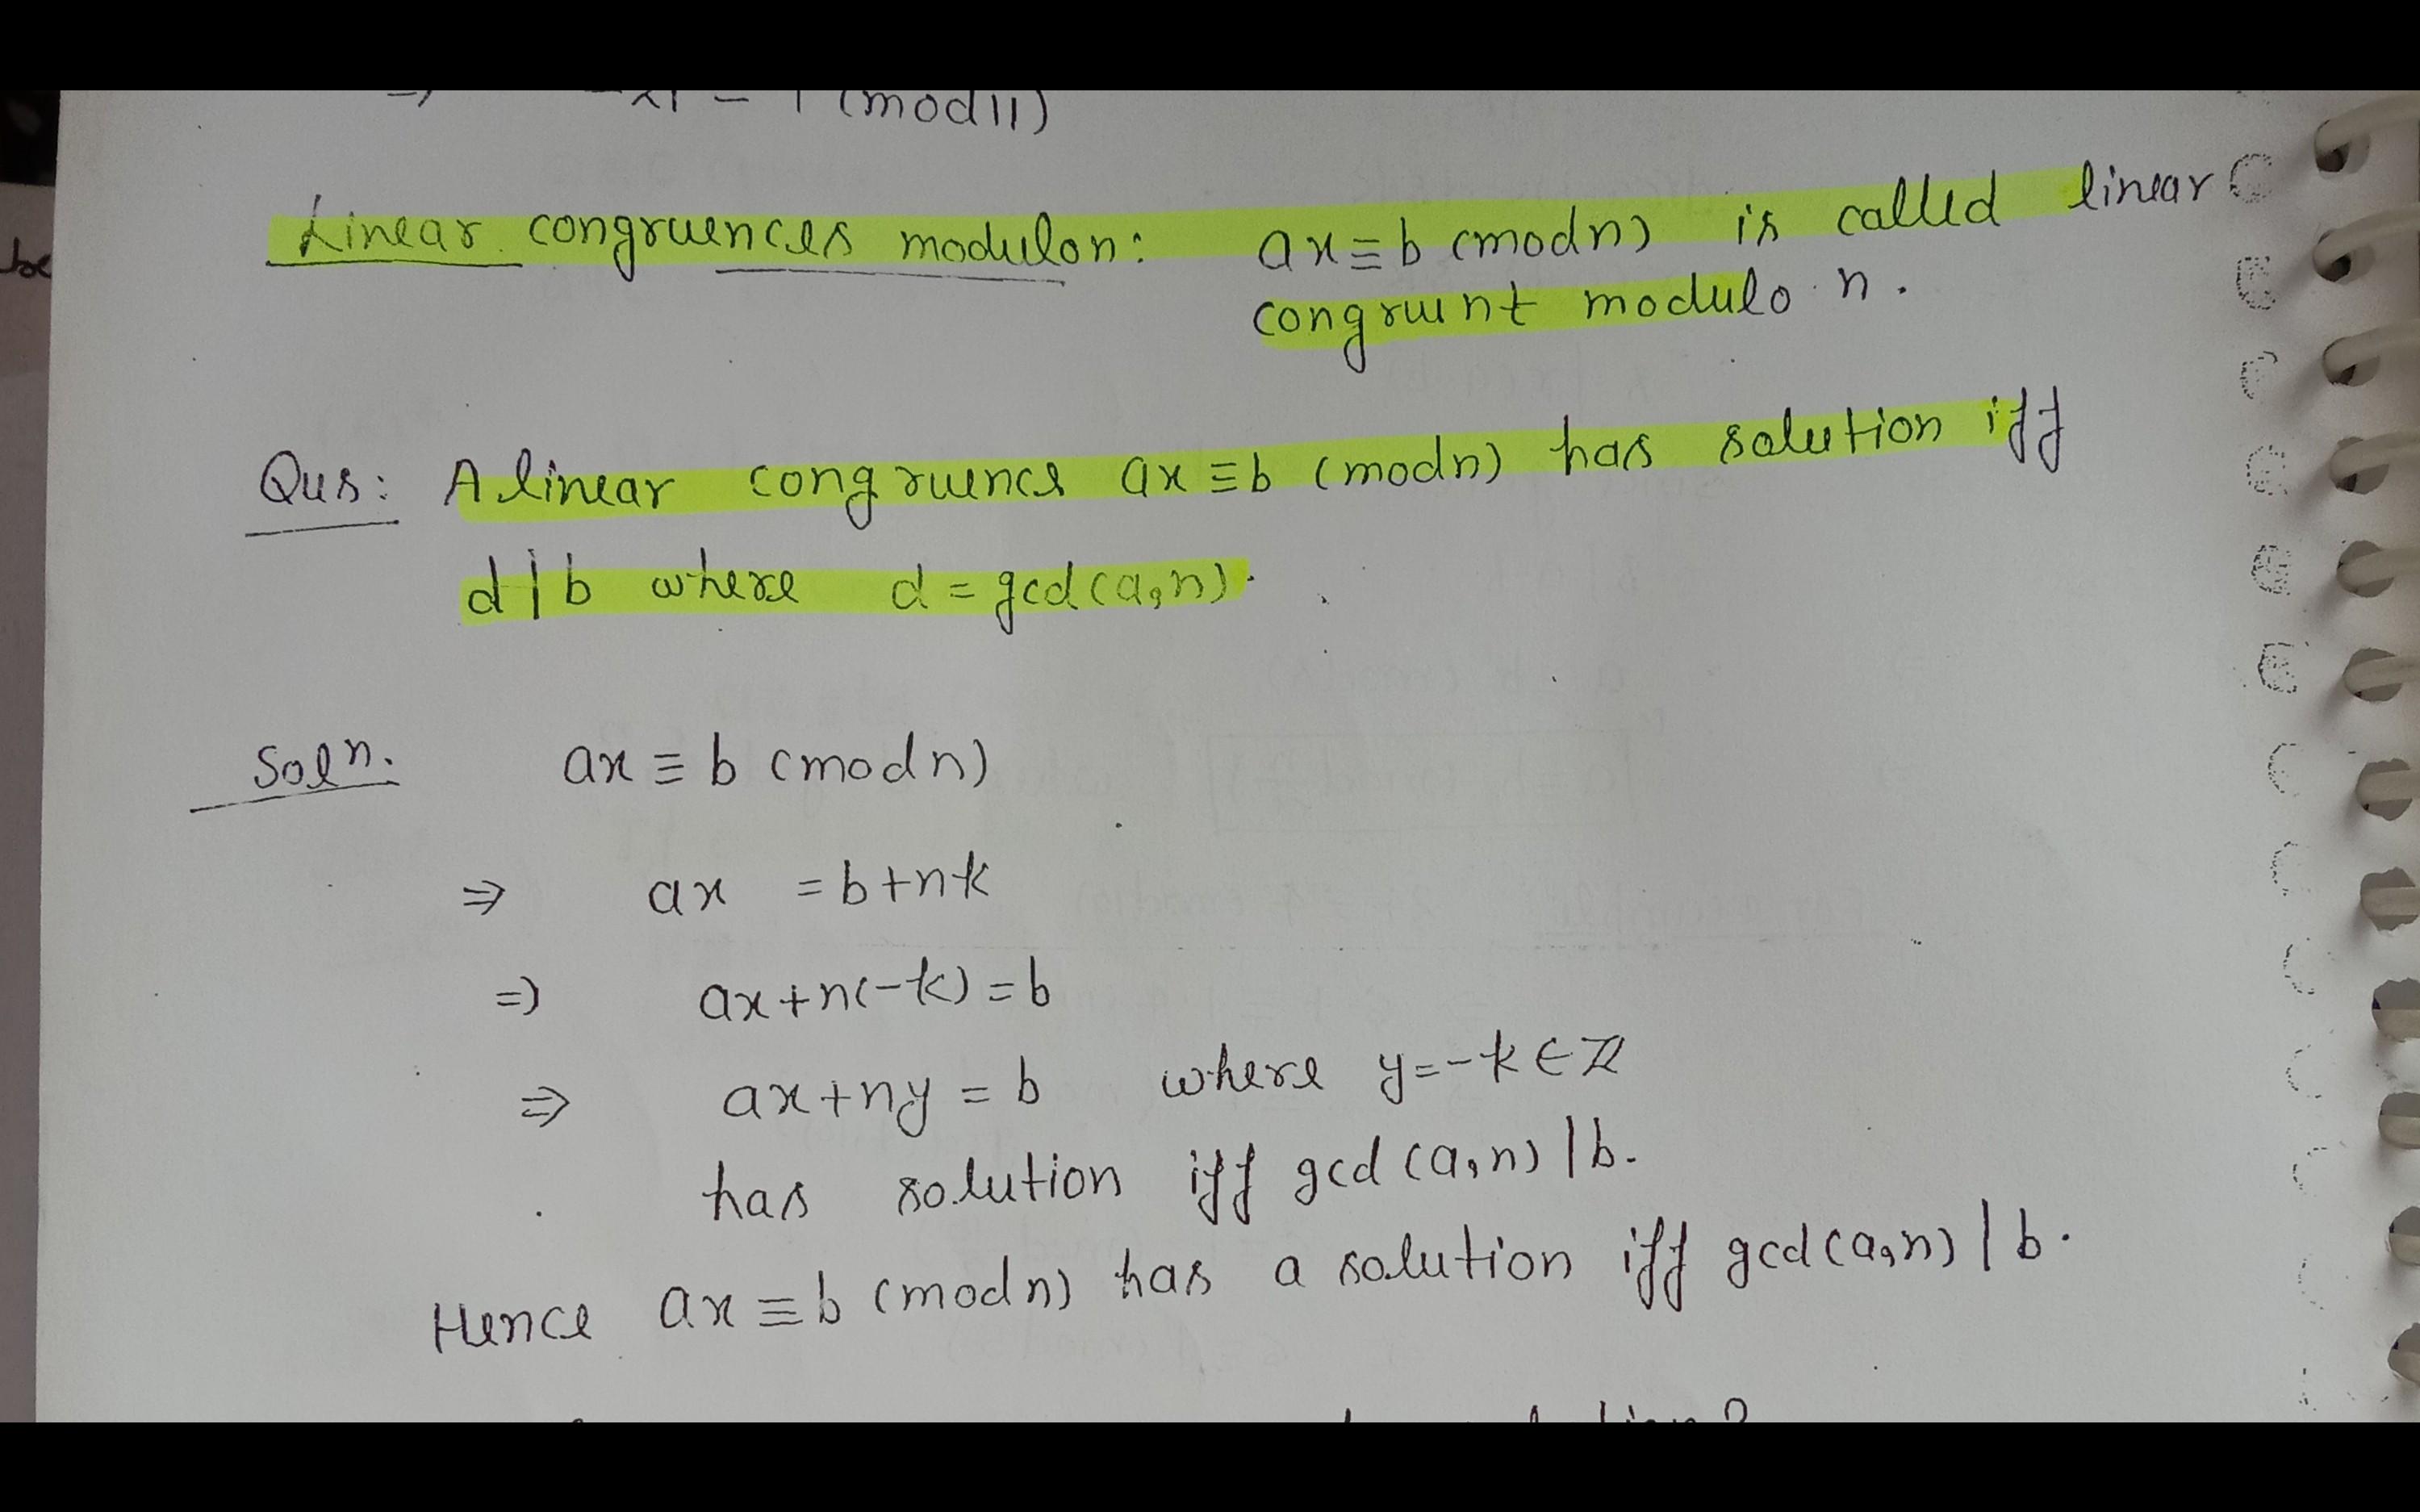 (mod 11)
Linear congruences modulo n: ax ≡ b (mod n) is called linear
congruent modulo n.
Qus: A linear congruence ax ≡ b (mod n) has solution iff
d | b where d = gcd(a, n).
Soln. ax ≡ b (mod n)
⇒ ax = b + nk
⇒ ax + n(-k) = b
⇒ ax + ny = b where y = -k ∈ ℤ
has solution iff gcd(a, n) | b.
Hence ax ≡ b (mod n) has a solution iff gcd(a, n) | b.